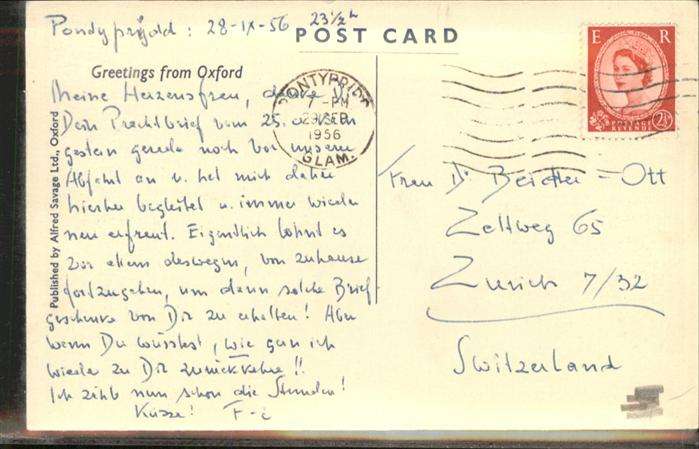 Pondypridd : 28-IX-56 23½h
POST CARD
E R
Greetings from Oxford
Meine Herzensfrau,
Dein Prachtbrief vom 25. kam
gestern gerade noch vor unserer
Abfahrt an u. hat mich daher
hierher begleitet u. immer wieder
neu erfreut. Eigentlich lohnt es
vor allem deswegen, von zuhause
fortzugehen, um dann solche Brief-
geschenke von Dir zu erhalten! Aber
wenn Du wüsstest, wie gern ich
wieder zu Dir zurückkehre!!
Ich zähl nun schon die Stunden!
Küsse!
PONTYPRIDD
7-PM
29 SEP
1956
GLAM.
POSTAGE
REVENUE
2½
Frau Dr Beidler-Ott
Zeltweg 65
Zurich 7/32
Switzerland
Published by Alfred Savage Ltd., Oxford